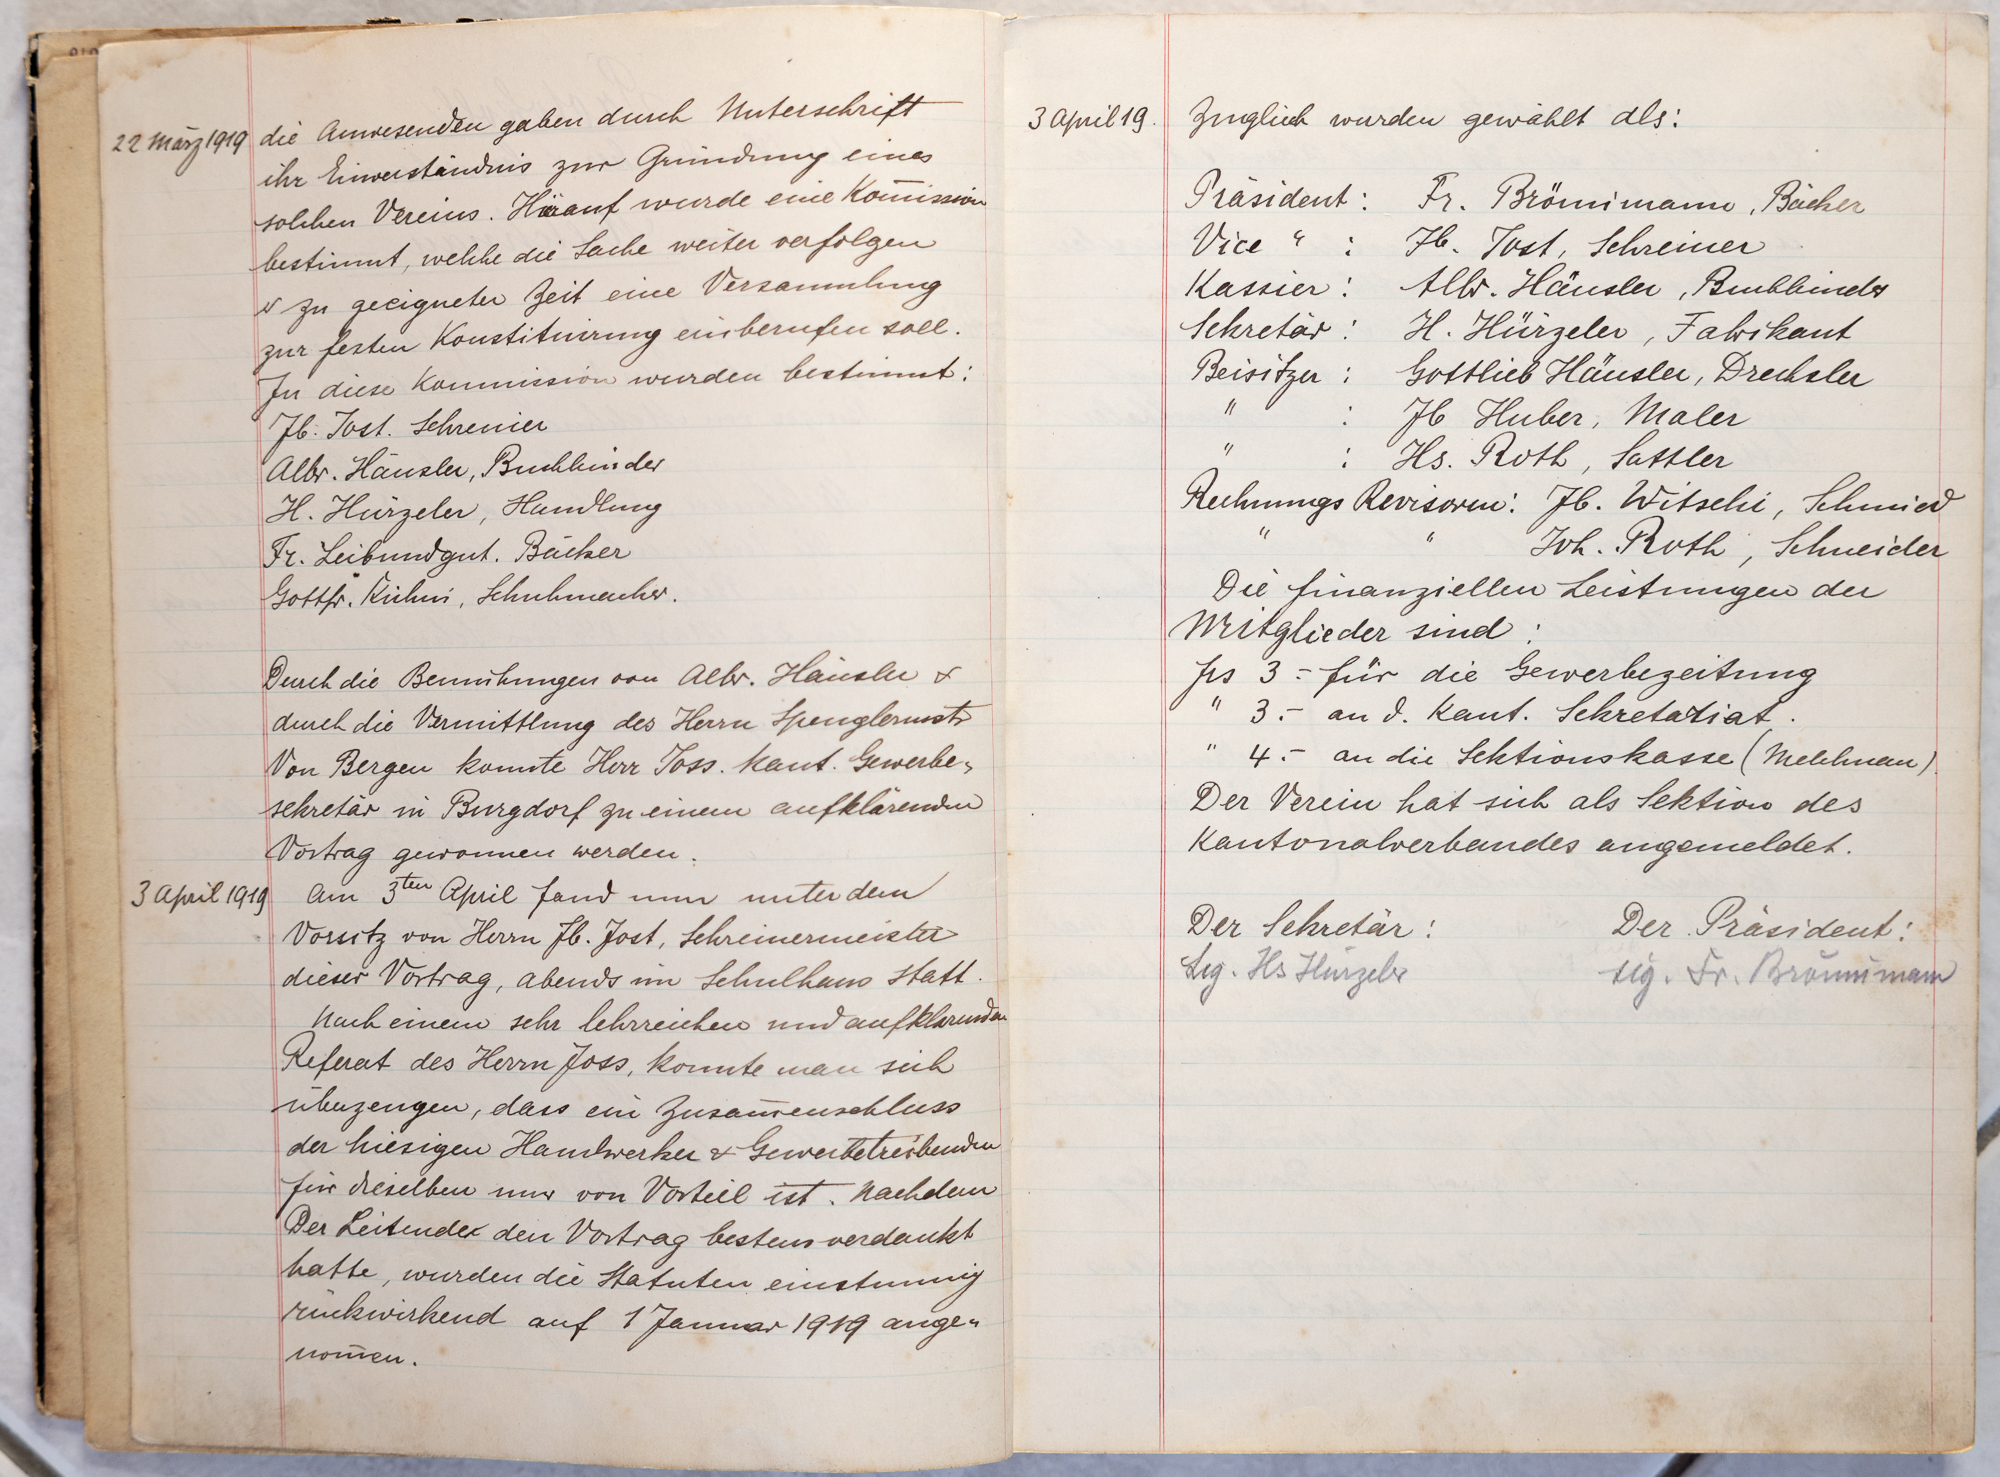 22 März 1919
die Anwesenden gaben durch Unterschrift
ihr Einverständnis zur Gründung eines
solchen Vereins. Hierauf wurde eine Kom̄ission
bestimmt, welche die Sache weiter verfolgen
& zu geeigneter Zeit eine Versammlung
zur festen Konstituirung einberufen soll.
In diese Kommission wurden bestimmt:
Jb. Jost. Schreiner
Albr. Häusler, Buchbinder
H. Hürzeler, Handlung
Fr. Leibundgut. Bäcker
Gottfr. Kühni, Schuhmacher.
Durch die Bemühungen von Albr. Häusler &
durch die Vermittlung des Herrn Spenglermstr
Von Bergen konnte Herr Joss. Kant. Gewerbe-
sekretär in Burgdorf zu einem aufklärenden
Vortrag gewonnen werden.
3 April 1919
Am 3ten April fand nun unter dem
Vorsitz von Herrn Jb. Jost, Schreinermeister
dieser Vortrag, abends im Schulhaus statt.
Nach einem sehr lehrreichen und aufklärenden
Referat des Herrn Joss, konnte man sich
überzeugen, dass ein Zusam̄enschluss
der hiesigen Handwerker & Gewerbetreibenden
für dieselben nur von Vorteil ist. Nachdem
Der Leitende den Vortrag bestens verdankt
hatte, wurden die Statuten einstimmig
rückwirkend auf 1 Januar 1919 ange-
nom̄en.
3 April 19.
Zugleich wurden gewählt als:
Präsident: Fr. Brönnimann, Bäcker
Vice " : Jb. Jost, Schreiner
Kassier: Albr. Häusler, Buchbinder
Sekretär: H. Hürzeler, Fabrikant
Beisitzer: Gottlieb Häusler, Drechsler
" : Jb Huber, Maler
" : Hs. Roth, Sattler
Rechnungs Revisoren: Jb. Witschi, Schmied
" " Joh. Roth, Schneider
Die finanziellen Leistungen der
Mitglieder sind:
frs 3.- für die Gewerbezeitung
" 3.- an d. Kant. Sekretariat.
" 4.- an die Sektionskasse (Melchnau)
Der Verein hat sich als Sektion des
Kantonalverbandes angemeldet.
Der Sekretär: Der Präsident:
sig. Hs Hürzeler sig. Fr. Brönnimann